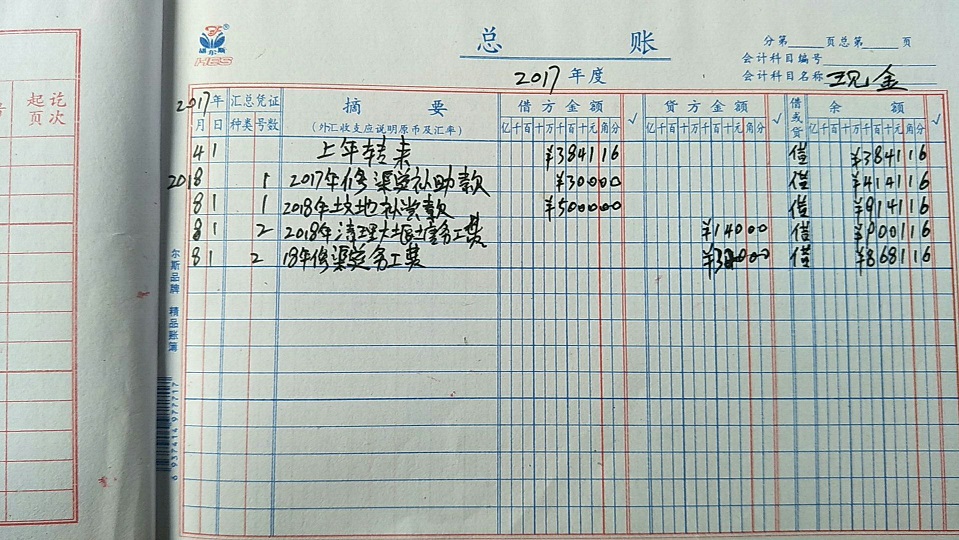 起讫
页次
福尔斯
HES
总 账
2017 年度
分第 页总第 页
会计科目编号
会计科目名称 现金
2017年 汇总凭证 摘要 借方金额 √ 贷方金额 √ 借或贷 余额 √
月 日 种类 号数 (外汇收支应说明原币及汇率) 亿千百十万千百十元角分 亿千百十万千百十元角分 亿千百十万千百十元角分
4 1 上年转来 ¥384116 借 ¥384116
2018 1 2017年修渠道补助款 ¥30000 借 ¥414116
8 1 1 2018年土地补偿款 ¥500000 借 ¥914116
8 1 2 2018年清理大堰务工费 ¥14000 借 ¥900116
8 1 2 18年修渠道务工费 借 ¥868116
尔斯品牌 精品账簿
6 937414 977717